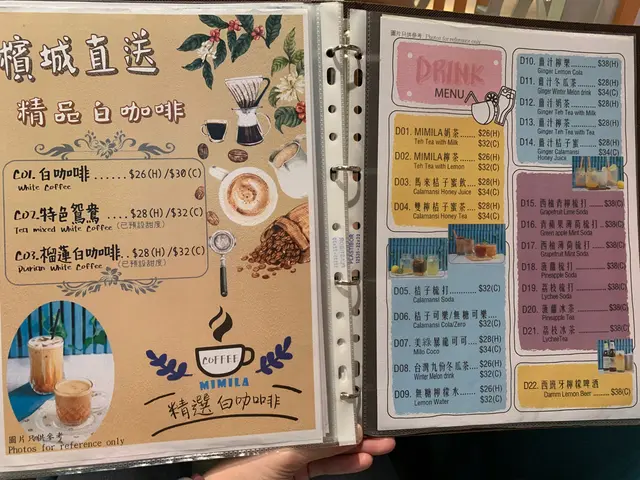 檳城直送
精品白咖啡
C01. 白咖啡.......$26(H)/$30(C)
White Coffee
C02. 特色鴛鴦....$28(H)/$32(C)
Tea mixed White Coffee (已預設甜度)
C03. 榴蓮白咖啡..$28(H)/$32(C)
Durian White Coffee (已預設甜度)
COFFEE
MIMILA
精選白咖啡
圖片只供參考
Photos for reference only
圖片只供參考 Photos for reference only
DRINK
MENU
D01. MIMILA奶茶 $28(H)
Teh Tea with Milk $32(C)
D02. MIMILA檸茶 $26(H)
Teh Tea with Lemon $32(C)
D03. 馬來桔子蜜飲 $28(H)
Calamansi Honey Juice $34(C)
D04. 雙檸桔子茶 $28(H)
Calamansi Honey Tea $34(C)
D05. 桔子梳打 $32(C)
Calamansi Soda
D06. 桔子可樂/無糖可樂
Calamansi Cola/Zero $32(C)
D07. 美祿暴龍可可 $28(H)
Milo Coco $34(C)
D08. 台灣九份冬瓜茶 $28(H)
Winter Melon drink $32(C)
D09. 無糖檸檬水 $26(H)
Lemon Water $32(C)
D10. 薑汁檸樂 $38(H)
Ginger Lemon Cola
D11. 薑汁冬瓜茶 $28(H)
Ginger Winter Melon drink $34(C)
D12. 薑汁奶茶 $28(H)
Ginger Teh Tea with Milk $34(C)
D13. 薑汁檸茶 $28(H)
Ginger Teh Tea $34(C)
D14. 薑汁桔子蜜 $28(H)
Ginger Calamansi $34(C)
Honey Juice
D15. 西柚青檸梳打 $38(C)
Grapefruit Lime Soda
D16. 青蘋果薄荷梳打 $38(C)
Green apple Mint Soda
D17. 西柚薄荷梳打 $38(C)
Grapefruit Mint Soda
D18. 菠蘿梳打 $38(C)
Pineapple Soda
D19. 荔枝梳打 $38(C)
Lychee Soda
D20. 菠蘿冰茶 $38(C)
Pineapple Tea
D21. 荔枝冰茶 $38(C)
Lychee Tea
D22. 西班牙檸檬啤酒
Damm Lemon Beer $38(C)